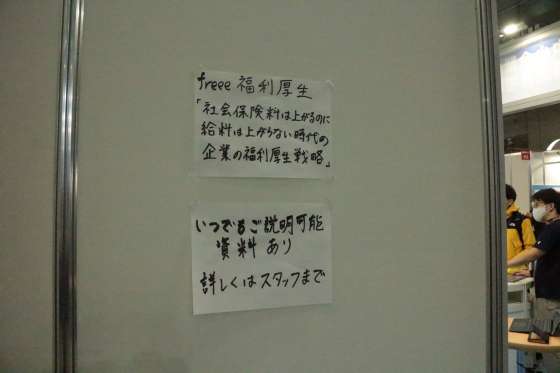 freee 福利厚生
「社会保険料は上がるのに
給料は上がらない時代の
企業の福利厚生戦略」
いつでもご説明可能
資料あり
詳しくはスタッフまで